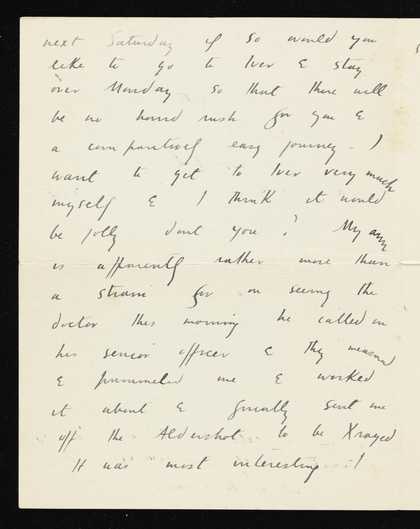 next Saturday if so would you
like to go to Iver & stay
over Monday so that there will
be no horrid rush for you &
a comparatively easy journey - I
want to get to Iver very much
myself & I think it would
be jolly dont you? My arm
is apparently rather more than
a strain for on seeing the
doctor this morning he called in
his senior officer & they measured
& pummeled me & worked
it about & finally sent me
off the Aldershot to be Xrayed
It was most interesting !